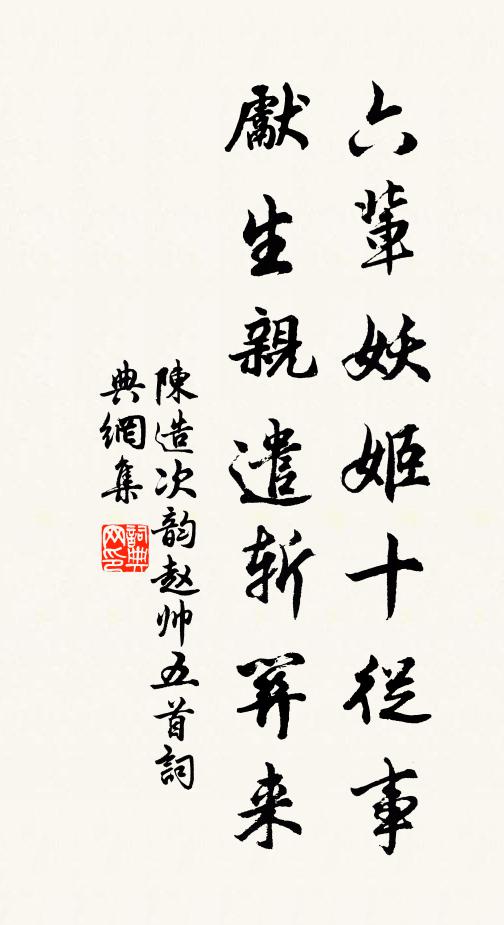 六輩妖姬十從事
獻生親遣斬關来
陳造次韵赵帅五首詞
典網集
詞典
网印